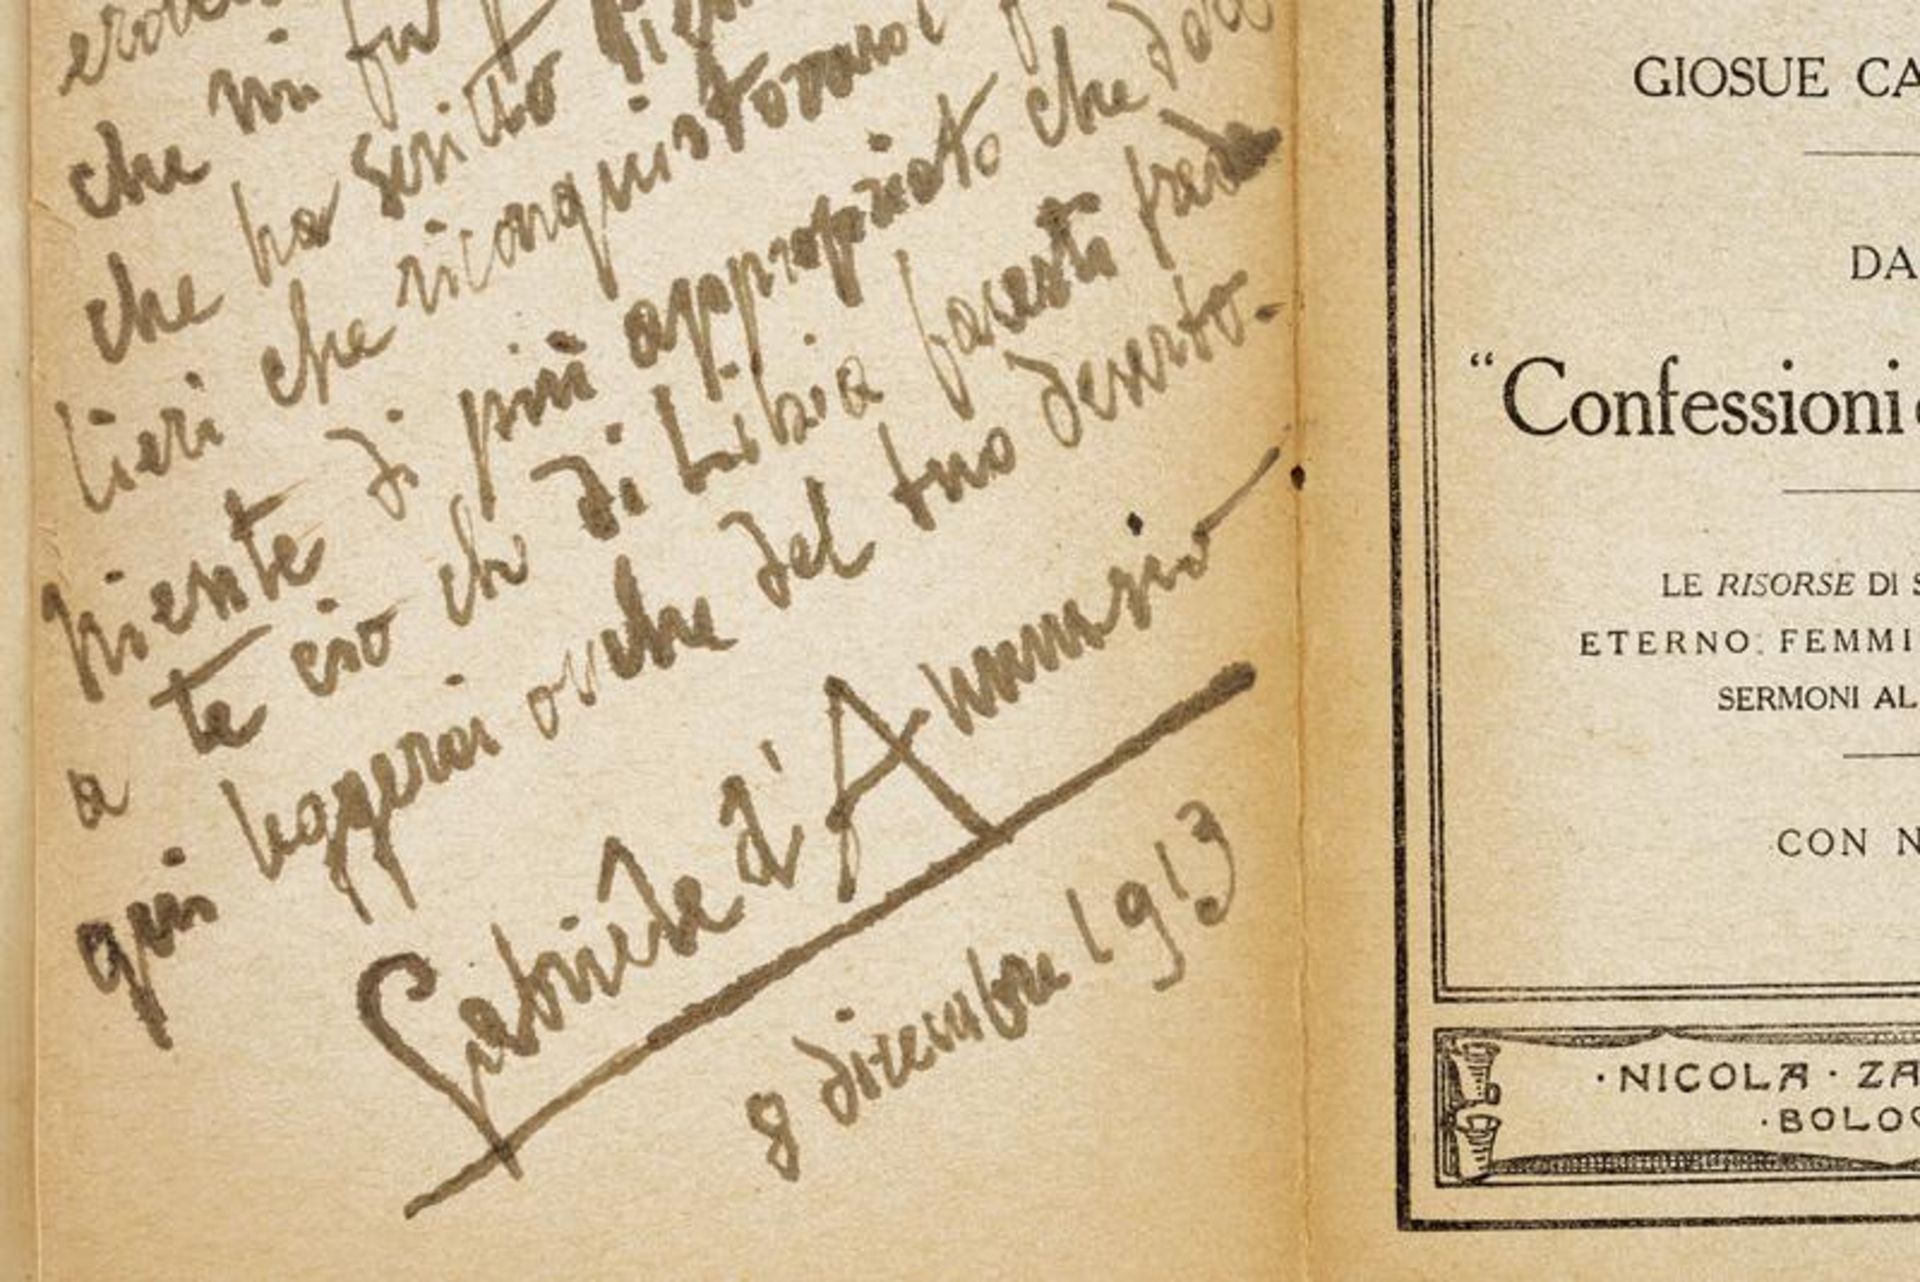 che mi fu
che ha scritto
tieri che riconquistarai
niente di più appropriato che
a te ciò che di Libia facesti
qui leggerai anche del tuo deserto.
Gabriele d'Annunzio
8 dicembre 1913
GIOSUE CA
DA
“Confessioni
LE RISORSE DI S
ETERNO FEMMI
SERMONI AL
CON N
·NICOLA · ZA
·BOLOG